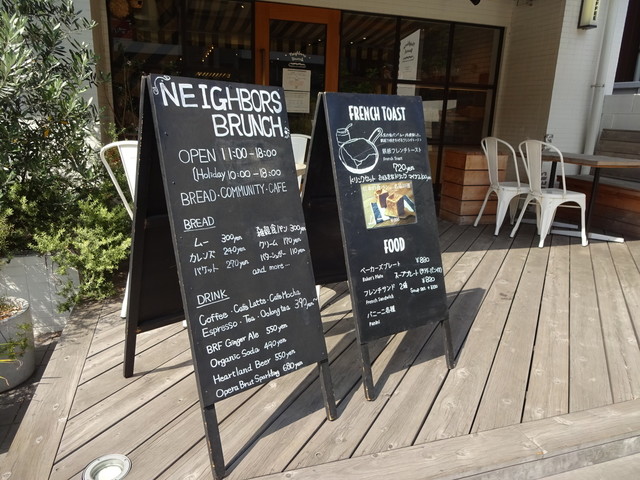 NEIGHBORS
BRUNCH
OPEN 11:00-18:00
(Holiday 10:00-18:00
BREAD・COMMUNITY・CAFE
BREAD
ムー 300yen
カレンズ 240yen
バケット 270yen
雑穀食パン 300yen
クリーム 170yen
バターシュガー 110yen
and more—
DRINK
Coffee・Cafe Latte・Cafe Mocha
Espresso・Tea・Oolong tea 390yen~
BRF Ginger Ale 550yen
Organic Soda 490yen
Heartland Beer 550yen
Opera Brut Sparkling 680yen
FRENCH TOAST
鉄板フレンチトースト
French Toast
720yen
FOOD
ベーカーズプレート ¥880
Baker's Plate
フレンチサンド 2種 ¥880
French Sandwich
パニーニ各種
Panini